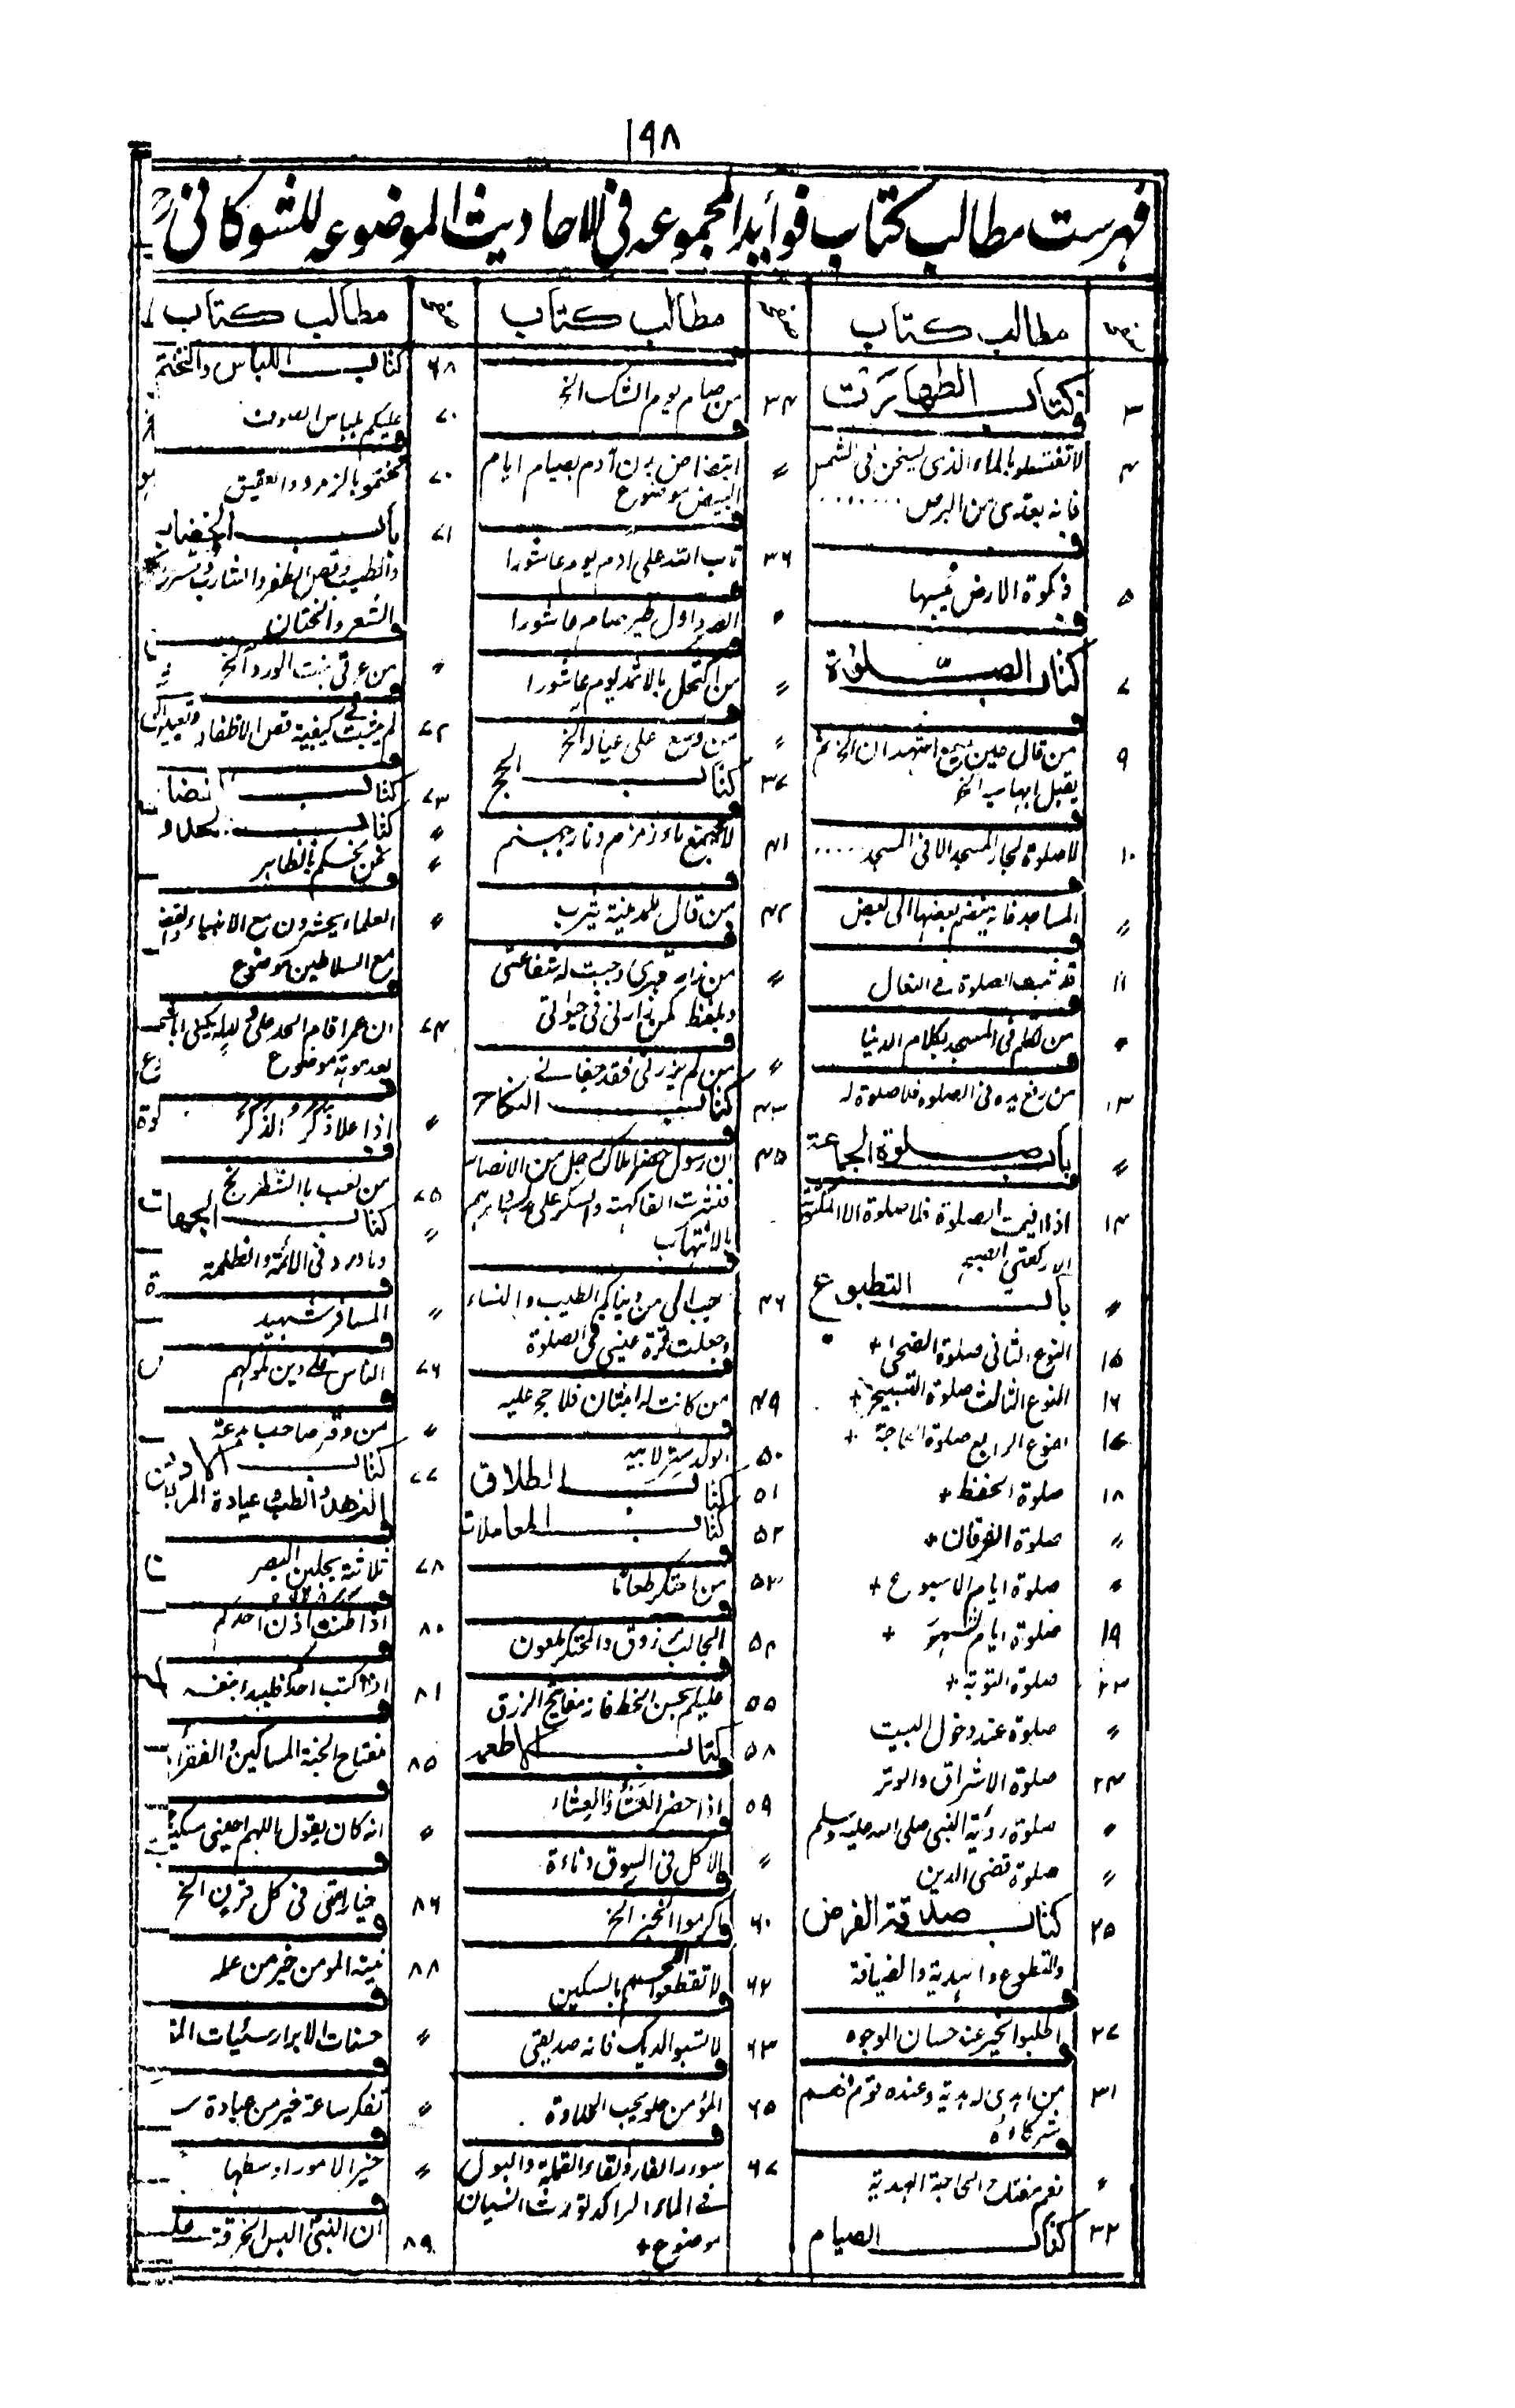 ۱۹۸
فهرست مطالب کتاب فوایدالمجموعه فی الاحادیث الموضوعه للشوکانی
صفحہ مطالب کتاب
۳ کتاب الطهارت
۴ لا تغتسلوا بالماء الذی یسخن فی الشمس
فانه یعدی من البرص ......
۵ ذکوة الارض یبسها
۷ کتاب الصلوة
۹ من قال حین یسمع اشهد ان الخ ثم
یقبل ابهامیه الخ
۱۰ لا صلوة لجار المسجد الا فی المسجد ....
〃 المساجد فانه ینضم بعضها الی بعض
۱۱ قد ثبت الصلوة فی النعال
〃 من تکلم فی المسجد بکلام الدنیا
۱۳ من رفع یده فی الصلوة فلا صلوة له
〃 باب صلوة الجماعة
۱۴ اذا اقیمت الصلوة فلا صلوة الا المکتوبة
الا رکعتی الصبح
〃 باب التطوع
۱۵ النوع الثانی صلوة الضحی +
۱۶ النوع الثالث صلوة التسبیح +
۱۷ النوع الرابع صلوة الحاجة +
۱۸ صلوة الحفظ +
〃 صلوة الفرقان +
〃 صلوة ایام الاسبوع +
۱۹ صلوة ایام الشهور +
۲۳ صلوة التوبة +
〃 صلوة عند دخول البیت
۲۴ صلوة الاشراق والوتر
〃 صلوة رؤیة النبی صلی الله علیه وسلم
〃 صلوة قضی الدین
۲۵ کتاب صدقة الفرض
والتطوع والهدیة والضیافة
۲۷ اطلبوا الخیر عند حسان الوجوه
۳۱ من اهدی له هدیة وعنده قوم فهم
شرکاؤه
〃 نعم مفتاح الحاجة الهدیة
۳۳ کتاب الصیام
صفحہ مطالب کتاب
۳۴ من صام یوم الشک الخ
〃 ابتضاض بدن آدم بصیام ایام
البیض موضوع
۳۶ تاب الله علی آدم یوم عاشورا
〃 الصرد اول طیر صام عاشورا
〃 من اکتحل بالاثمد یوم عاشورا
〃 من وسع علی عیاله الخ
۳۷ کتاب الحج
۴۱ لا یجتمع ماء زمزم و نار جهنم
۴۲ من قال للمدینة یثرب
〃 من زار قبری وجبت له شفاعتی
وبلفظ کمن زارنی فی حیوتی
〃 من لم یزرنی فقد جفانی
۴۳ کتاب النکاح
۴۵ ان رسول حضر املاک رجل من الانصار
فنثرت الفاکهة والسکر علی
بالانتهاب
۴۶ حبب الی من دنیاکم الطیب والنساء
وجعلت قرة عینی فی الصلوة
۴۹ من کانت له ابنتان فلا حج علیه
۵۰ الولد سر لابیه
۵۱ کتاب الطلاق
۵۲ کتاب المعاملات
۵۳ من احتکر طعاما
۵۴ الجالب مرزوق والمحتکر ملعون
۵۵ علیکم بحسن الخط فانه مفاتیح الرزق
۵۸ کتاب الاطعمه
۵۹ اذا حضر العشاء والعشاء
〃 الاکل فی السوق دناءة
۶۰ اکرموا الخبز الخ
۶۲ لا تقطعوا اللحم بالسکین
۶۳ لا تسبوا الدیک فانه صدیقی
۶۵ المؤمن حلو یحب الحلاوة
۶۷ سور الفار والقاء القملة والبول
فی الماء الراکد تورث النسیان
موضوع +
صفحہ مطالب کتاب
۶۸ کتاب اللباس والتختم
۷۰ علیکم بلباس الصوف
۷۰ تختموا بالزمرد والعقیق
۷۱ باب الخضاب
والطیب وقص الظفر والشارب وتسریح
الشعر والختان
〃 من عرقی نبت الورد الخ
۷۲ لم یثبت فی کیفیة قص الاظفار
۷۳ کتاب القضا
〃 کتاب
〃 نحن نحکم بالظاهر
〃 العلماء یحشرون مع الانبیاء والقضاة
مع السلاطین موضوع
۷۴ ان عمر اقام الحد علی ولد له یکنی
بعد موته موضوع
〃 اذا علا ذکر الذکر
من لعب بالشطرنج
۷۵ کتاب الجهاد
〃 وما ورد فی الائمة والظلمة
〃 المسافر شهید
۷۶ الناس علی دین ملوکهم
〃 من وقر صاحب بدعة
۷۷ کتاب الادب
الزهد والطب وعیادة المریض
۷۸ ثلاثة یجلین البصر
۸۰ اذا طنت اذن احدکم
۸۱ اذا کتب احدکم فلیبدا بنفسه
۸۵ مفتاح الجنة المساکین والفقراء
〃 انه کان یقول اللهم احینی مسکینا
۸۶ خیار امتی فی کل قرن الخ
۸۸ نیة المومن خیر من عمله
〃 حسنات الابرار سئیات
〃 تفکر ساعة خیر من عبادة
〃 خیر الامور اوسطها
۸۹ ان النبی البس الخرقة